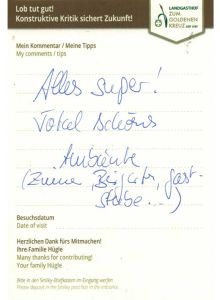 Lob tut gut!
Konstruktive Kritik sichert Zukunft!
LANDGASTHOF
ZUM
GOLDENEN
KREUZ
Mein Kommentar / Meine Tipps
My comments / tips
Alles super!
Total schönes
Ambiente
(Zimmer, Gast-
stube...)
Besuchsdatum
Date of visit
Herzlichen Dank fürs Mitmachen!
Ihre Familie Hügle
Many thanks for contributing!
Your family Hügle
Bitte in den Smiley-Briefkasten im Eingang werfen
Please deposit in the Smiley post box in the entrance.